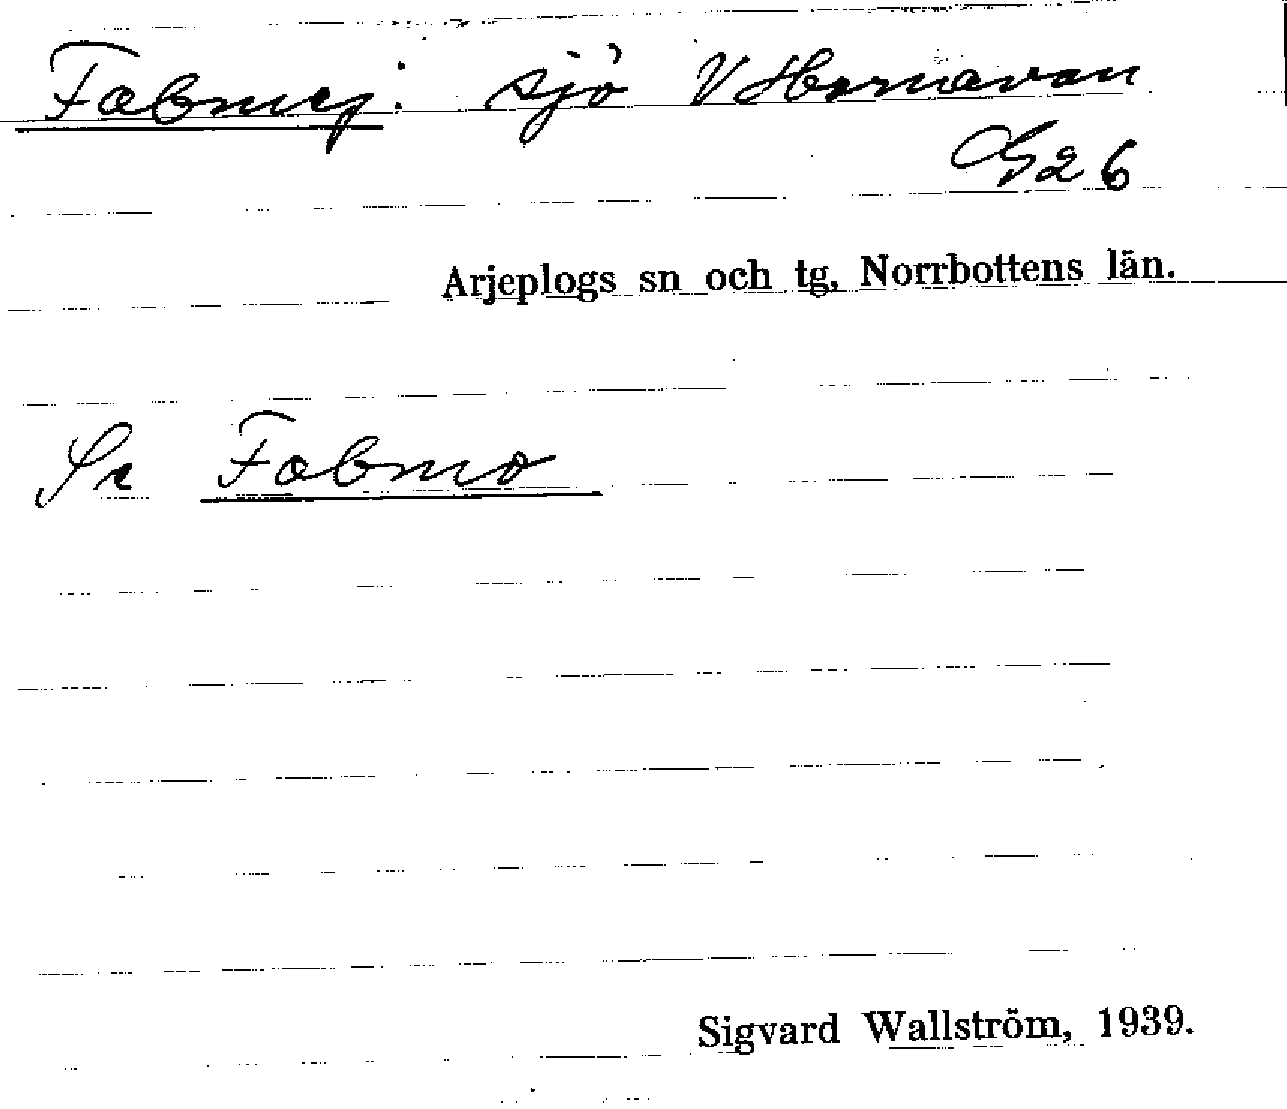 Fabmej: sjö V Hornavan
G26
Arjeplogs sn och tg, Norrbottens län.
Se Fabmo
Sigvard Wallström, 1939.